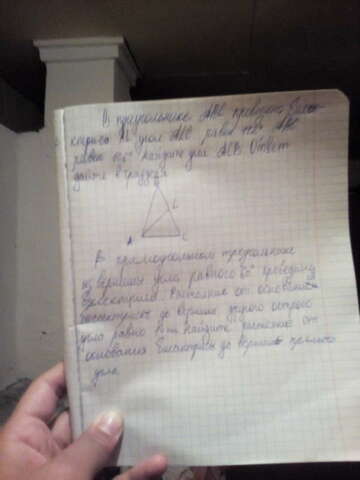 В треугольнике ABC проведена бисс-
ектриса AL угол ALC равен ABC
равен Найдите угол ACB. Ответ
дайте в градусах
B
L
A C
В прямоугольном треугольнике
из вершины угла равного 60° проведена
биссектриса. Расстояние от основания
биссектрисы до вершины другого острого
угла равно Найдите расстояние от
основания биссектрисы до вершины прямого
угла